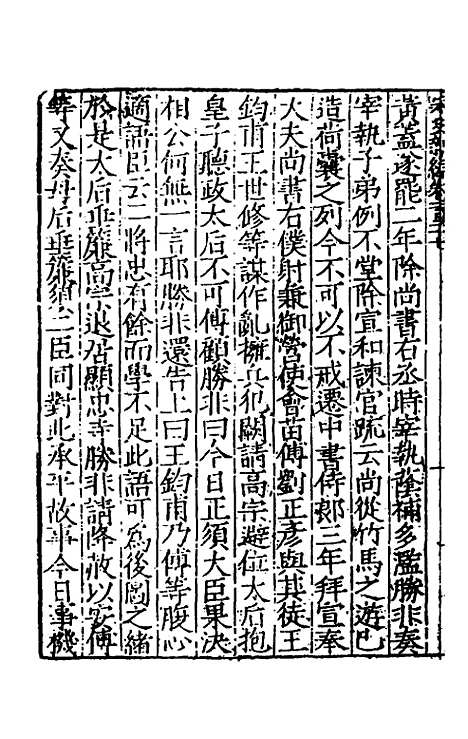 宋史新編卷一百二十七
黃蓋遂罷二年除尚書右丞時宰執䕃補多濫勝非奏
宰執子弟例不堂除宣和諫官䟽云尚從竹馬之遊已
造荷囊之列今不可以不戒遷中書侍郎三年拜宣奉
大夫尚書右僕射兼御營使會苗傅劉正彥與其徒王
鈞甫王世修等謀作亂擁兵犯闕請高宗避位太后抱
皇子聽政太后不可傅顧勝非曰今日正須大臣果決
相公何無一言耶勝非還告上曰王鈞甫乃傅等腹心
適語臣云二將忠有餘而學不足此語可爲後圖之緒
於是太后垂簾高宗退居顯忠寺勝非請降赦以安傅
等又奏母后垂簾須二臣同對此承平故事今日事機